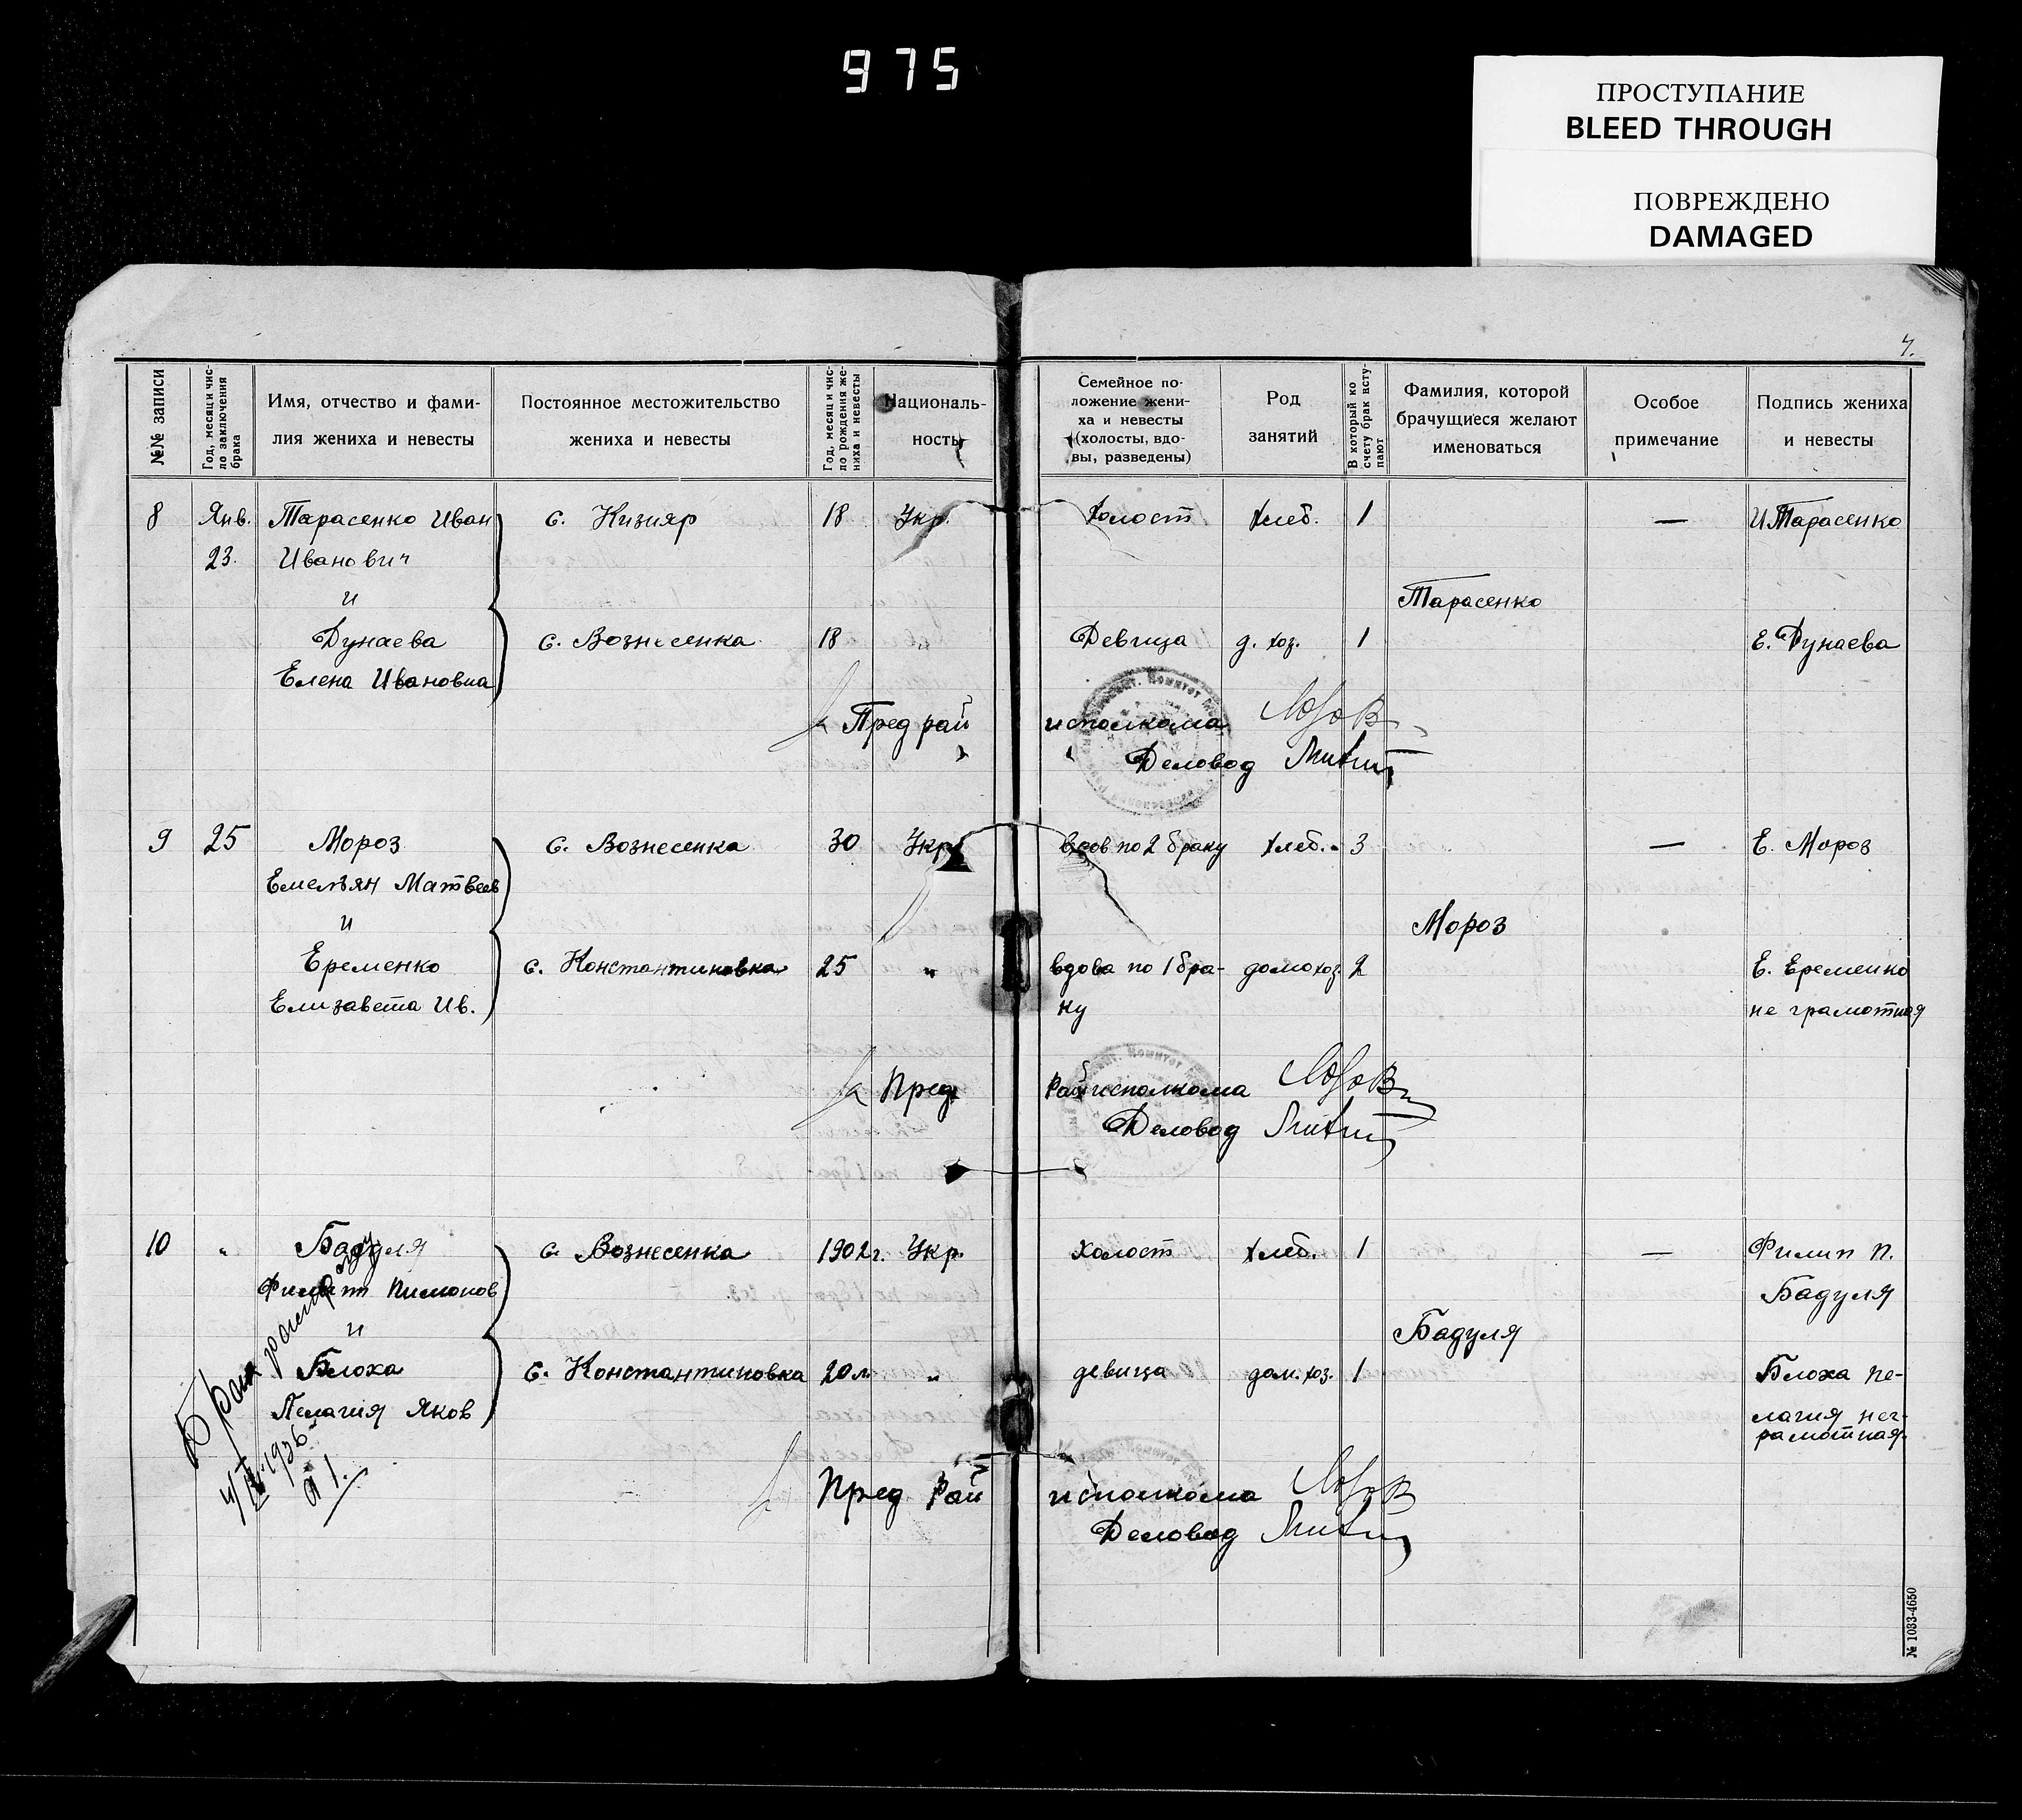 975
ПРОСТУПАНИЕ
BLEED THROUGH
ПОВРЕЖДЕНО
DAMAGED
№№ записи
Год, месяц и чис-
ло заключения
брака
Имя, отчество и фами-
лия жениха и невесты
Постоянное местожительство
жениха и невесты
Год, месяц и чис-
ло рождения же-
ниха и невесты
Националь-
ность
Семейное по-
ложение жени-
ха и невесты
(холосты, вдо-
вы, разведены)
Род
занятий
В который ко
счету брак всту-
пают
Фамилия, которой
брачущиеся желают
именоваться
Особое
примечание
Подпись жениха
и невесты
8 Янв. Тарасенко Иван с. Кизияр 18 Укр. Холост хлеб. 1 — И Тарасенко
23. Иванович
и
Тарасенко
Дунаева с. Вознесенка 18 " Девица д. хоз. 1 Е. Дунаева
Елена Ивановна
Пред рай исполкома
Деловод
9 25 Мороз с. Вознесенка 30 Укр вдов по 2 браку хлеб. 3 — Е. Мороз
Емельян Матвеев
и
Мороз
Еременко с. Константиновка 25 " вдова по 1 бра- домохоз 2 Е. Еременко
Елизавета Ив. ку не грамотная
Пред Райисполкома
Деловод
10 " Бадуля с. Вознесенка 1902г. Укр. холост хлеб. 1 — Филип П.
Филипп Пимонов Бадуля
и
Бадуля
Блоха с. Константиновка 20 л. " девица дом. хоз. 1 Блоха Пе-
Пелагия Яков лагия нег-
рамотная
Брак
1936
Пред Рай исполкома
Деловод
№ 1033-4650